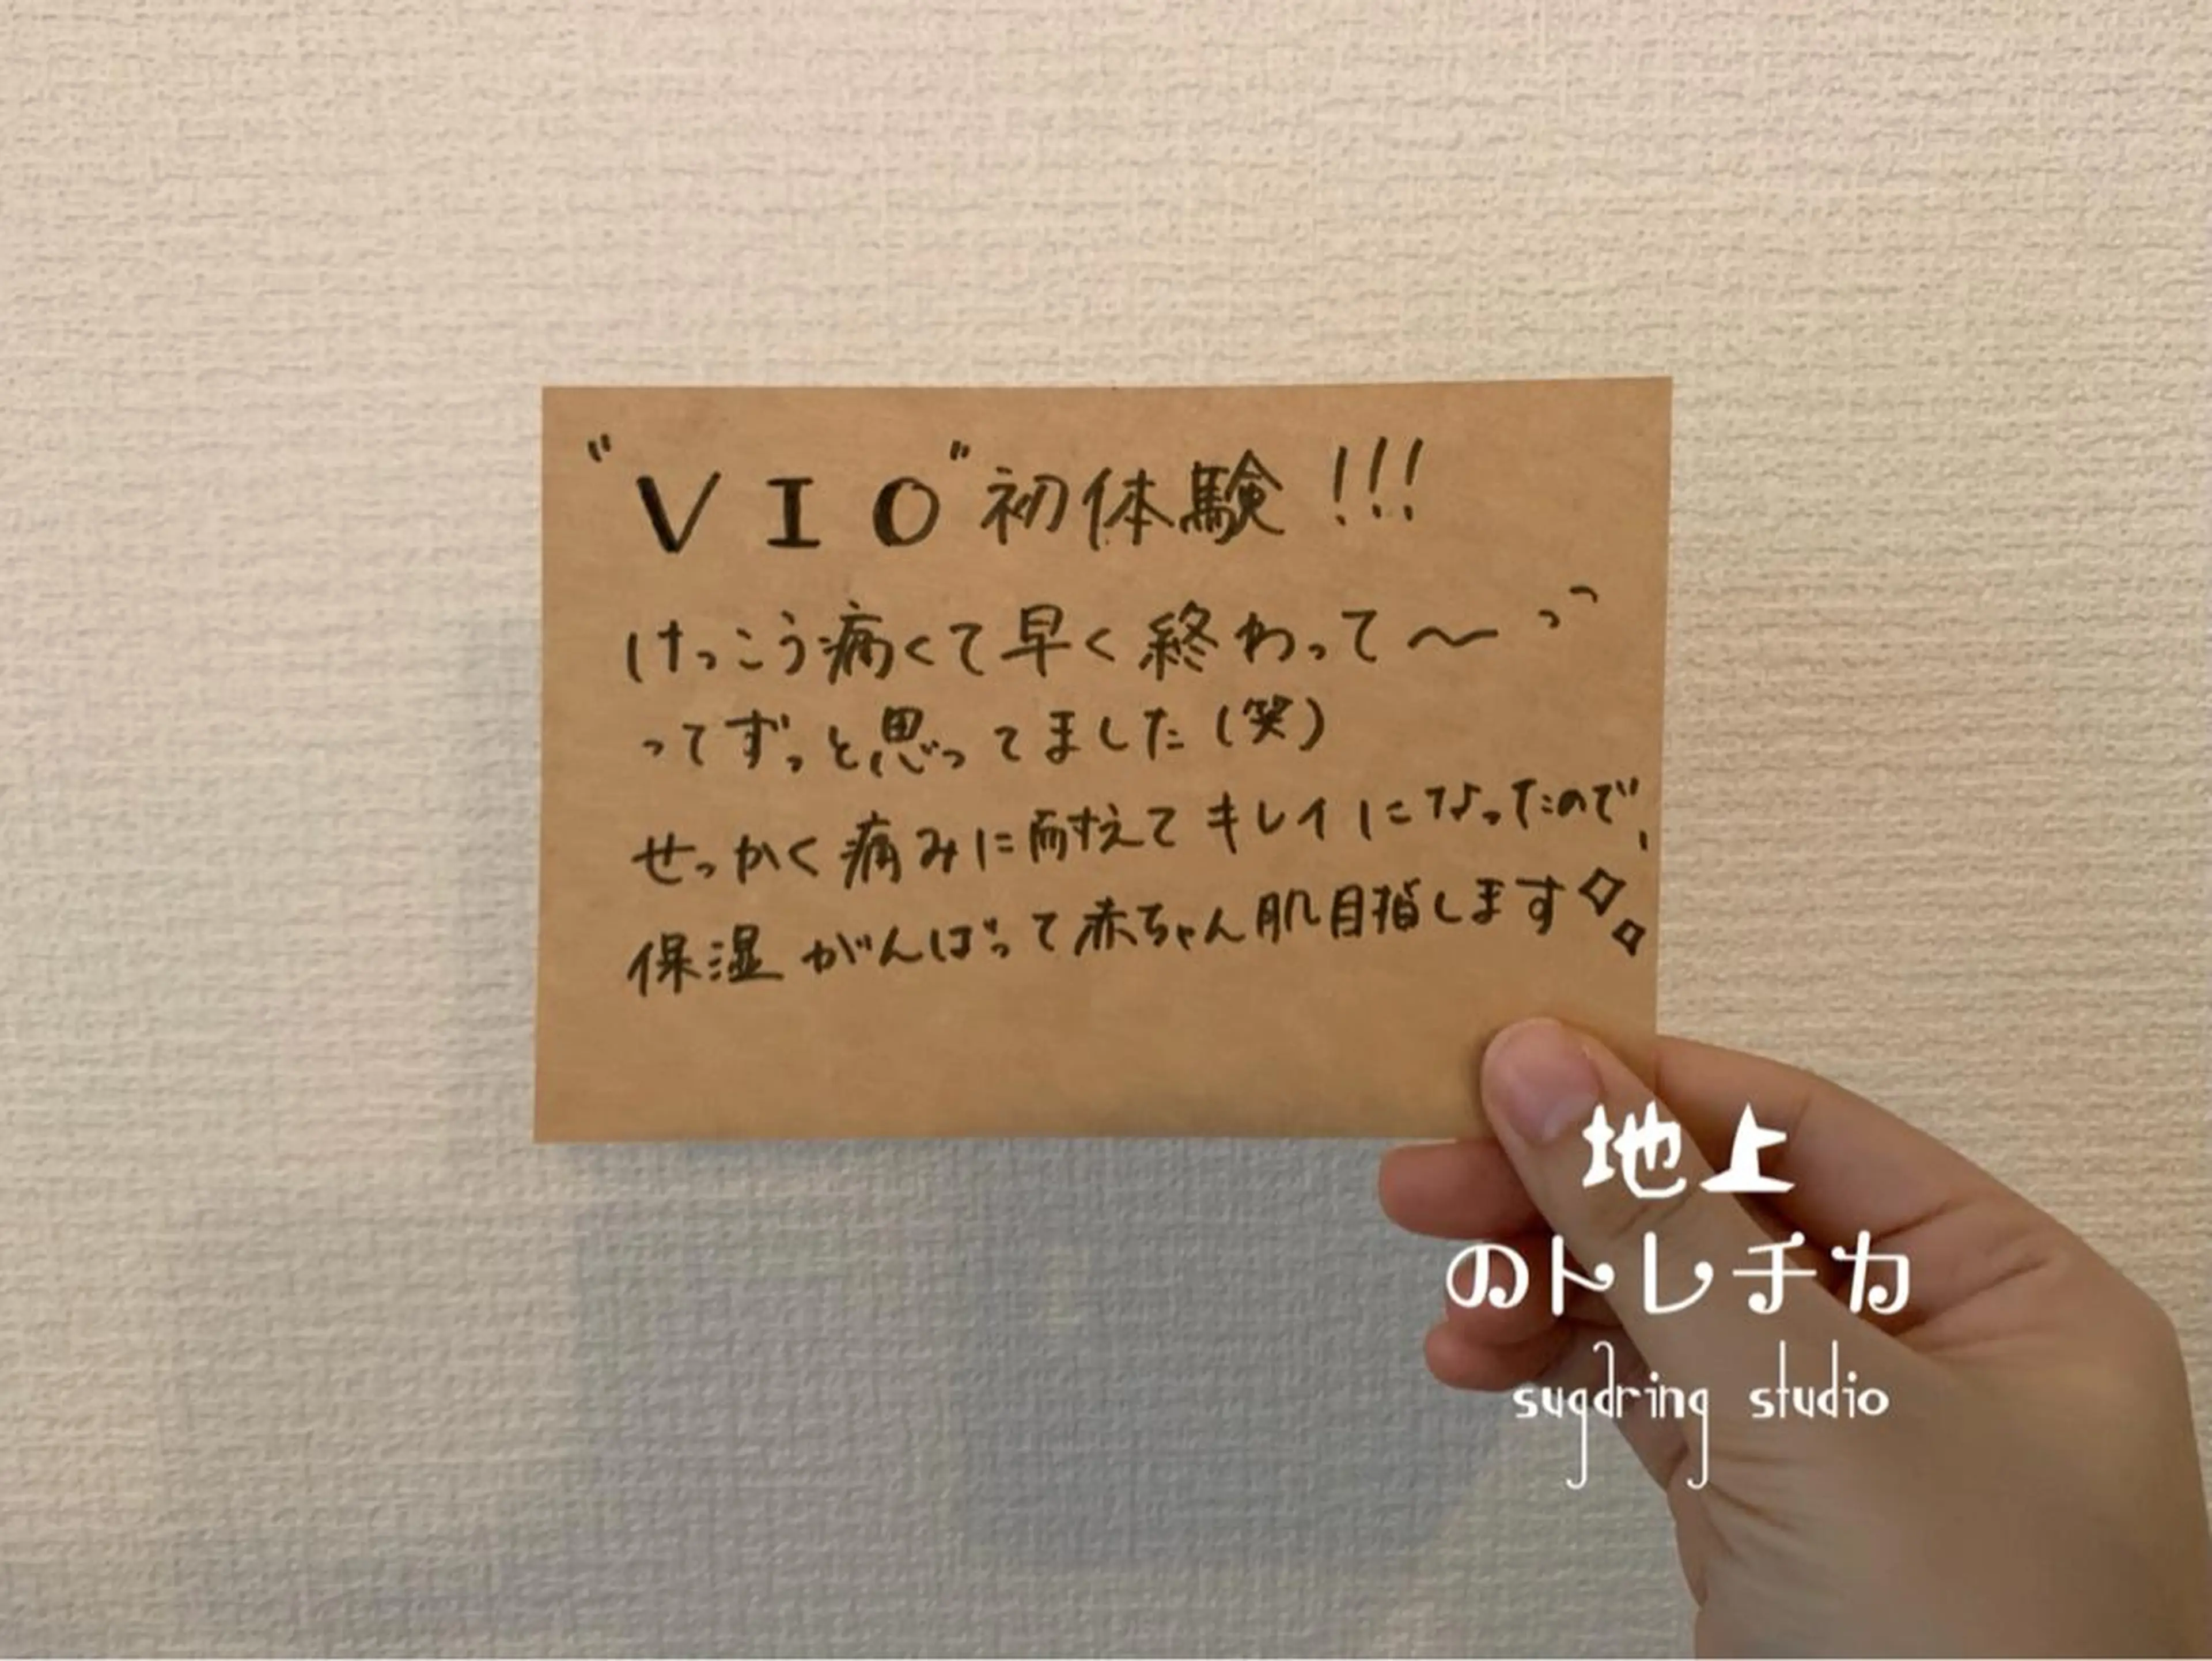 "VIO"初体験!!!
けっこう痛くて早く終わって〜っっ
ってずっと思ってました(笑)
せっかく痛みに耐えてキレイになったので、
保湿がんばって赤ちゃん肌目指します✧✧
地上
のトレチカ
sugaring studio